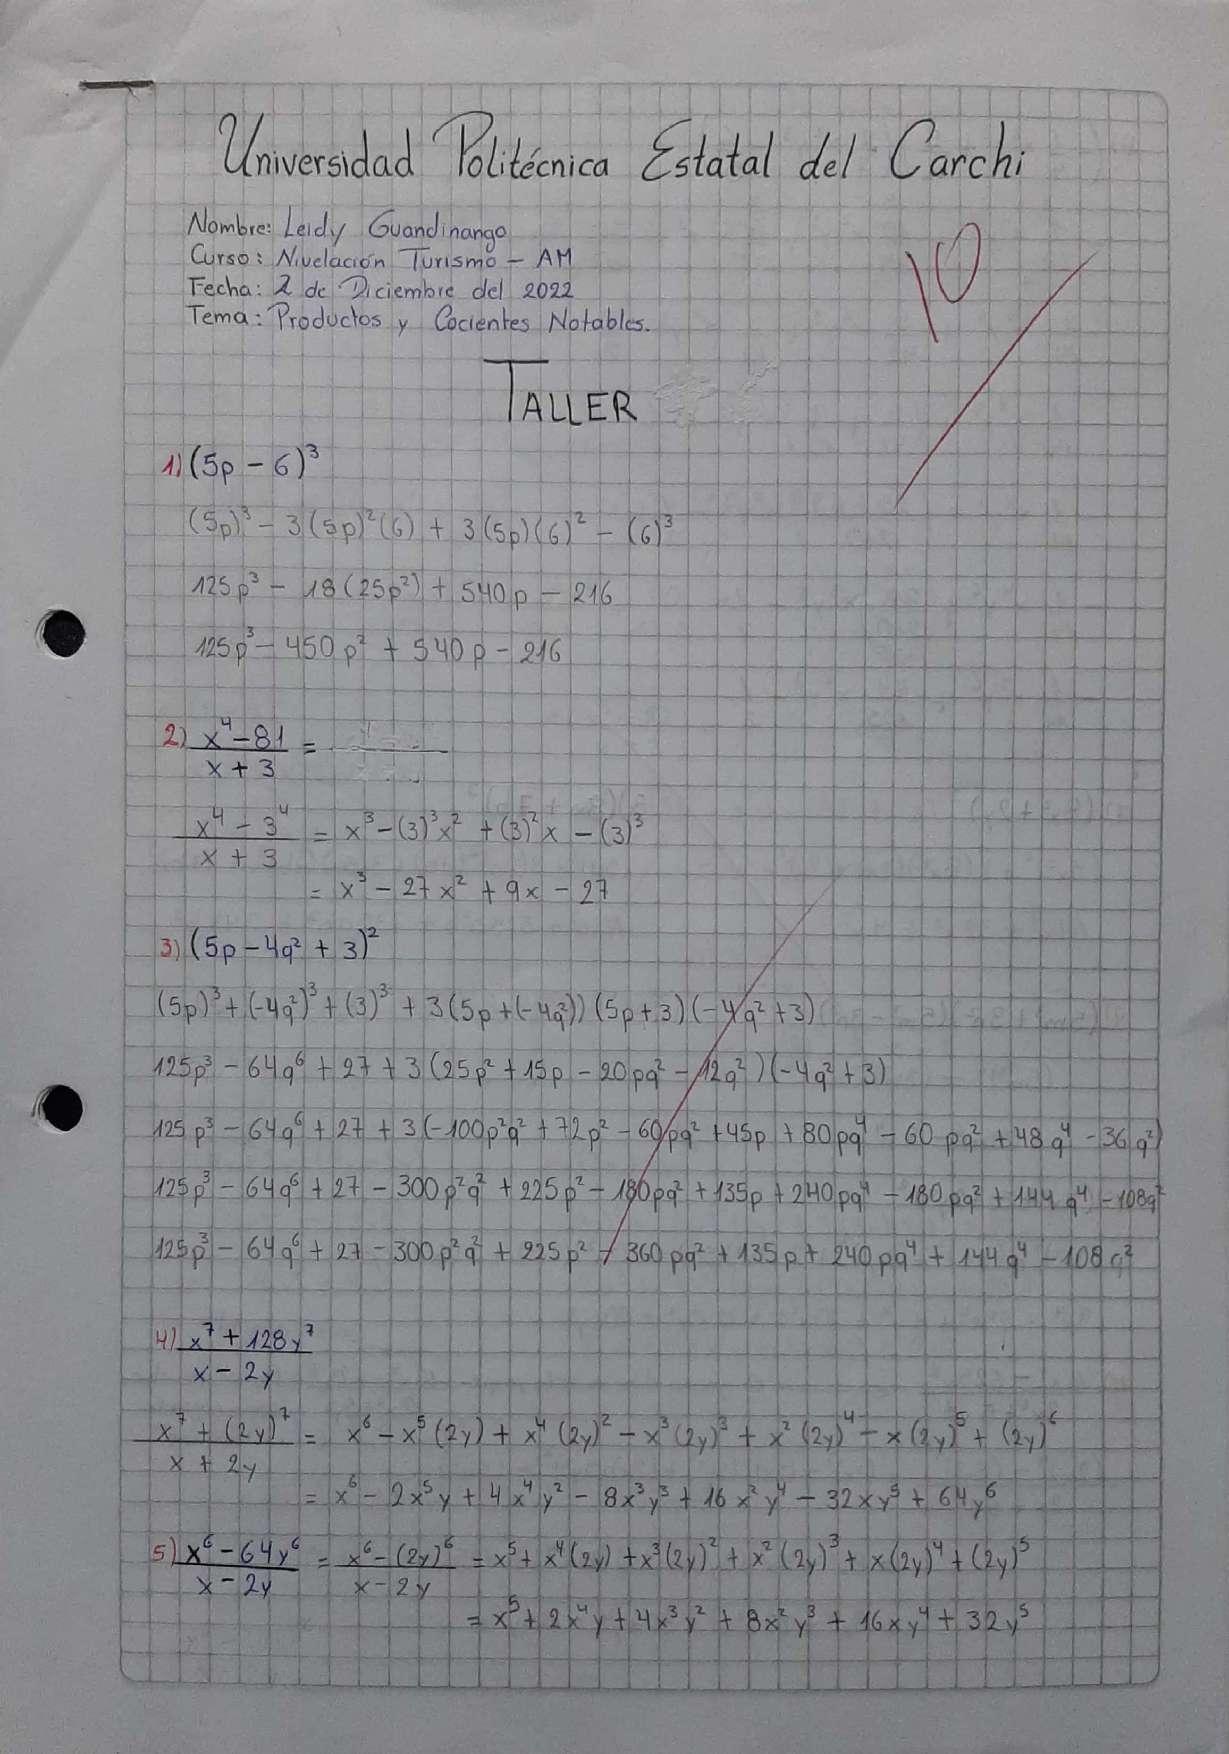 Universidad Politécnica Estatal del Carchi
Nombre: Leidy Guandinango
Curso: Nivelación Turismo - AM
Fecha: 2 de Diciembre del 2022
Tema: Productos y Cocientes Notables.
10
TALLER
1) (5p - 6)³
(5p)³ - 3(5p)²(6) + 3(5p)(6)² - (6)³
125p³ - 18(25p²) + 540p - 216
125p³ - 450p² + 540p - 216
2) x⁴ - 81 / x + 3 =
x⁴ - 3⁴ / x + 3 = x³ - (3)³x² + (3)²x - (3)³
= x³ - 27x² + 9x - 27
3) (5p - 4q² + 3)²
(5p)³ + (-4q²)³ + (3)³ + 3(5p + (-4q²)) (5p + 3) (-4q² + 3)
125p³ - 64q⁶ + 27 + 3(25p² + 15p - 20pq² - 12q²)(-4q² + 3)
125p³ - 64q⁶ + 27 + 3(-100p²q² + 72p² - 60pq² + 45p + 80pq⁴ - 60pq² + 48q⁴ - 36q²)
125p³ - 64q⁶ + 27 - 300p²q² + 225p² - 180pq² + 135p + 240pq⁴ - 180pq² + 144q⁴ - 108q²
125p³ - 64q⁶ + 27 - 300p²q² + 225p² - 360pq² + 135p + 240pq⁴ + 144q⁴ - 108q²
4) x⁷ + 128y⁷ / x - 2y
x⁷ + (2y)⁷ / x + 2y = x⁶ - x⁵(2y) + x⁴(2y)² - x³(2y)³ + x²(2y)⁴ - x(2y)⁵ + (2y)⁶
= x⁶ - 2x⁵y + 4x⁴y² - 8x³y³ + 16x²y⁴ - 32xy⁵ + 64y⁶
5) x⁶ - 64y⁶ / x - 2y = x⁶ - (2y)⁶ / x - 2y = x⁵ + x⁴(2y) + x³(2y)² + x²(2y)³ + x(2y)⁴ + (2y)⁵
= x⁵ + 2x⁴y + 4x³y² + 8x²y³ + 16xy⁴ + 32y⁵